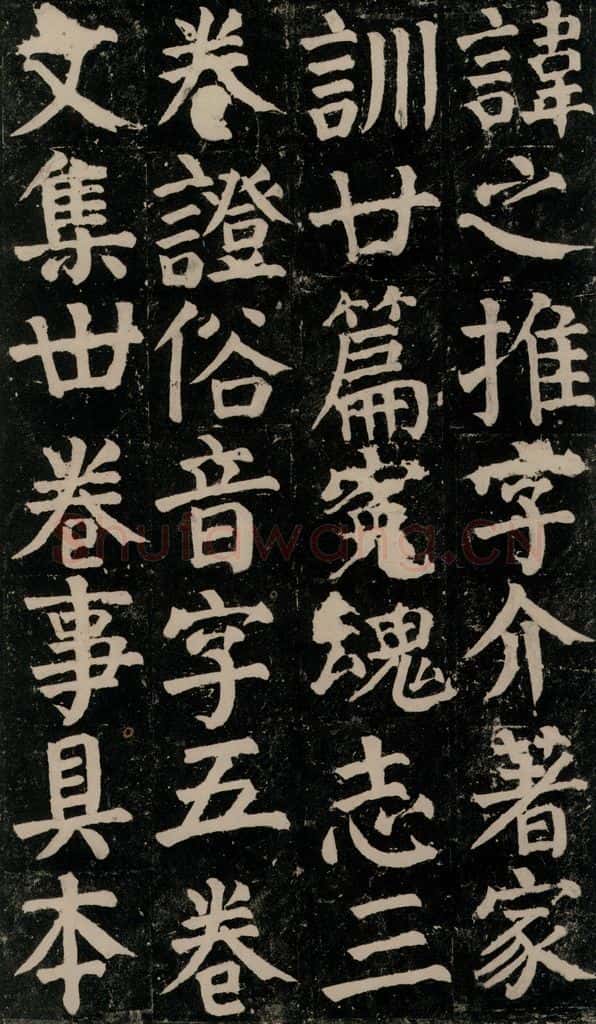 諱之推字介著家
訓廿篇冤魂志三
卷證俗音字五卷
文集卅卷事具本
shufawang.CN